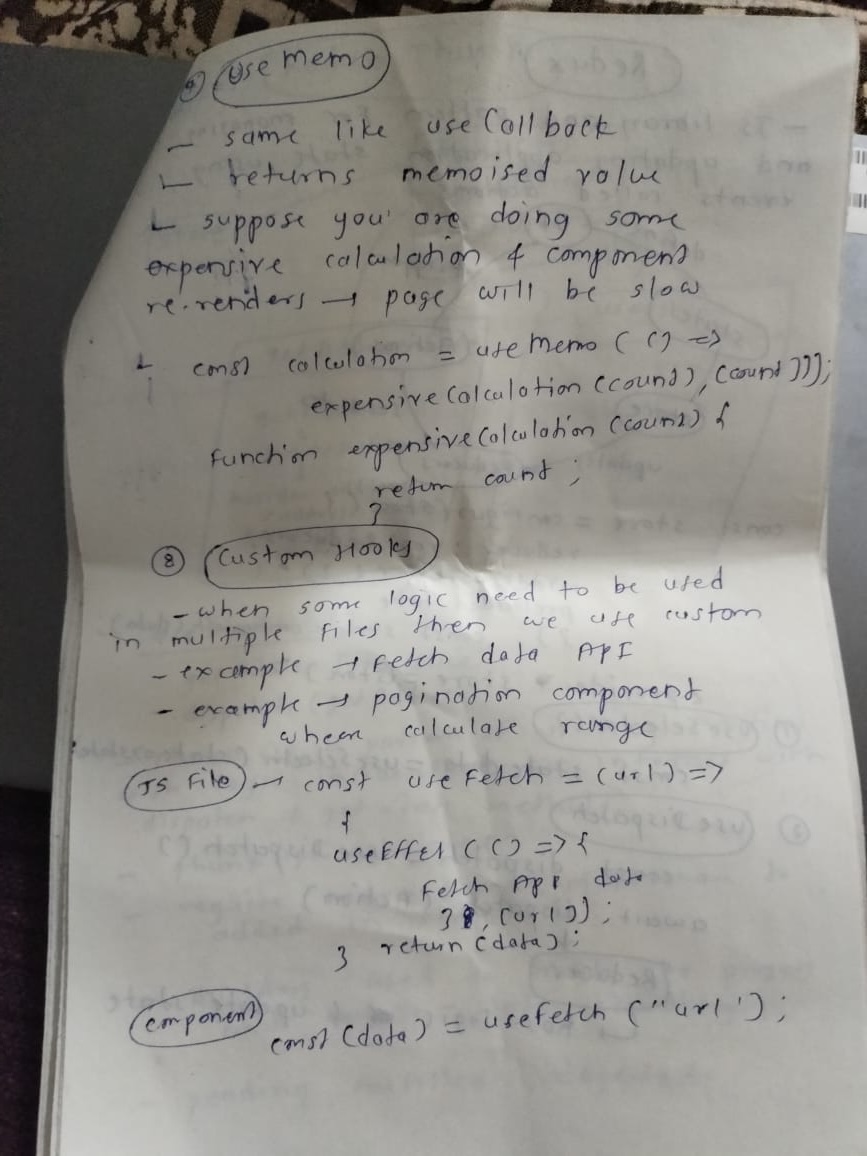 Use Memo
- same like useCallback
- returns memoised value
- suppose you are doing some
expensive calculation & component
re-renders → page will be slow
- const calculation = useMemo ( () =>
expensiveCalculation (count), (count)));
function expensiveCalculation (count) {
return count ;
}
8 Custom Hooks
- when some logic need to be used
in multiple files then we use custom
- example → Fetch data API
- example → pagination component
where calculate range
JS File → const useFetch = (url) =>
{
useEffet ( () => {
Fetch Api data
}, [url]);
} return [data];
component
const [data] = usefetch ("url');